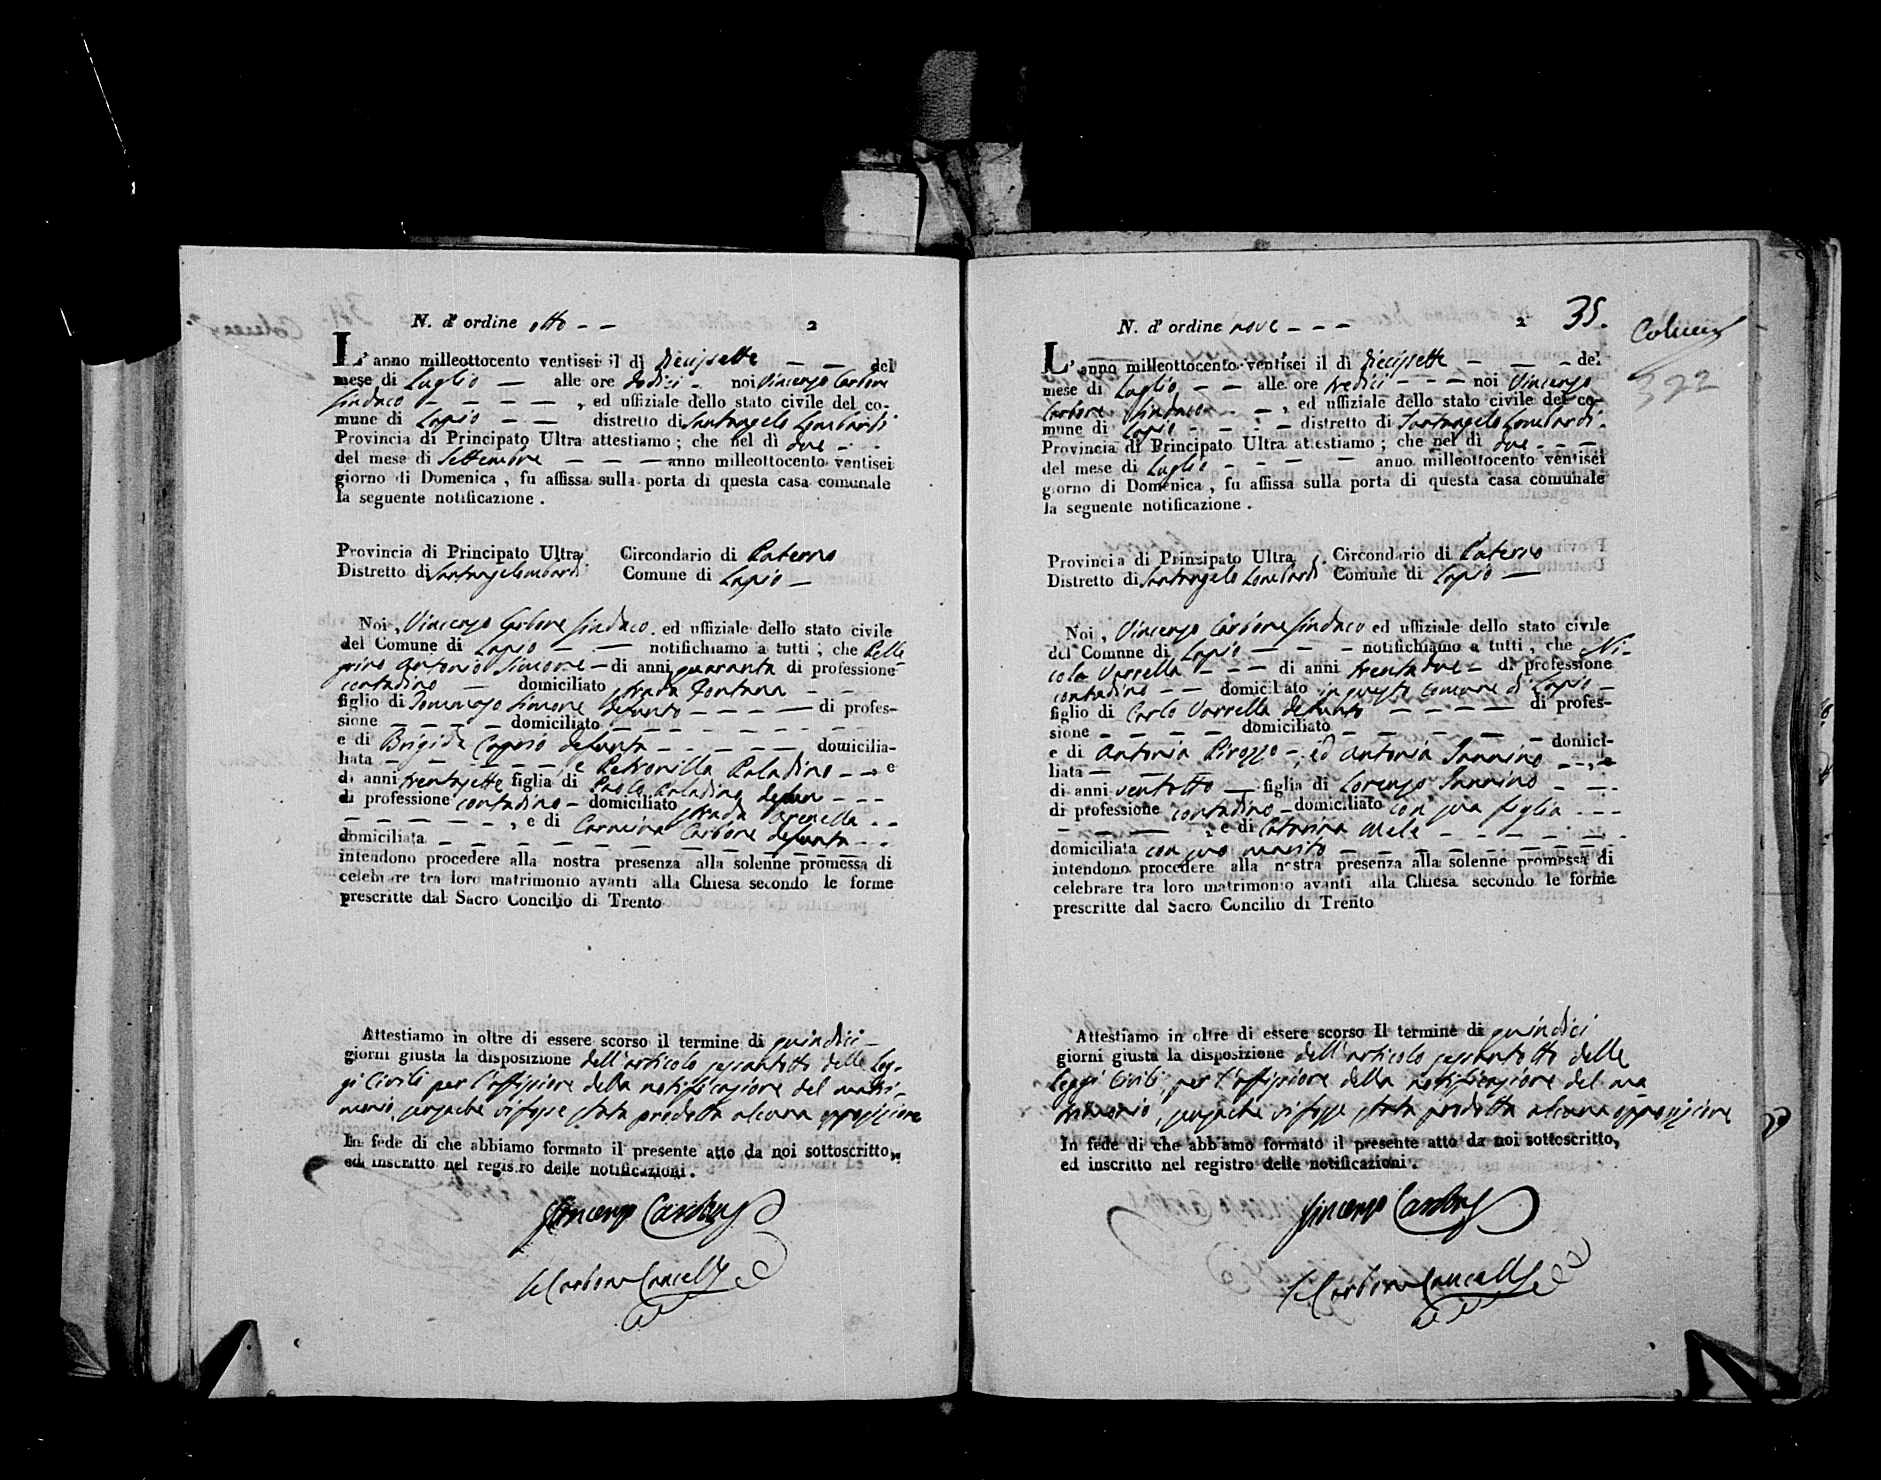 N. d' ordine otto - - 2
L' anno milleottocento ventisei il dì diecissette - - del
mese di Luglio - alle ore dodici - noi Vincenzo Carbone
Sindaco - - - - , ed uffiziale dello stato civile del co-
mune di Lapio - - distretto di Santangelo Lombardi
Provincia di Principato Ultra attestiamo ; che nel dì due - -
del mese di Settembre - - - anno milleottocento ventisei
giorno di Domenica , fu affissa sulla porta di questa casa comunale
la seguente notificazione .
Provincia di Principato Ultra Circondario di Paterno
Distretto di Santangelo Lombardi Comune di Lapio -
Noi , Vincenzo Carbone Sindaco . ed uffiziale dello stato civile
del Comune di Lapio - - notifichiamo a tutti , che Pelle
grino Antonio Simone - di anni quaranta di professione
contadino - domiciliato strada Fontana - -
figlio di Domenico Simone defunto - - - - di profes-
sione - - - - domiciliato - - - - - - -
e di Brigida Caprio defunta - - - - - domicilia-
liata - - - - - - , e Petronilla Paladino - - , e
di anni trentasette figlia di Paolo Paladino defun - - -
di professione contadino - domiciliato strada Arenella - -
- - - - - , e di Carmina Carbone defunta - -
domiciliata - - - - - - - - - - -
intendono procedere alla nostra presenza alla solenne promessa di
celebrare tra loro matrimonio avanti alla Chiesa secondo le forme
prescritte dal Sacro Concilio di Trento
Attestiamo in oltre di essere scorso il termine di quindici -
giorni giusta la disposizione dell'articolo sessantotto delle Leg-
gi Civili per l'affissione della notificazione del matri-
monio, senzache vi fosse stata prodotta alcuna opposizione
In fede di che abbiamo formato il presente atto da noi sottoscritto,
ed inscritto nel registro delle notificazioni .
Vincenzo Carbone
Carbone Cancelle
N. d' ordine nove - - - 2 35.
L' anno milleottocento ventisei il dì diecissette - - - del
mese di Luglio - - alle ore tredici - - - noi Vincenzo
Carbone Sindaco - - , ed uffiziale dello stato civile del co-
mune di Lapio - - - - distretto di Santangelo Lombardi .
Provincia di Principato Ultra attestiamo ; che nel dì due - - -
del mese di Luglio - - - - anno milleottocento ventisei
giorno di Domenica , fu affissa sulla porta di questa casa comunale
la seguente notificazione .
392
Provincia di Principato Ultra . Circondario di Paterno
Distretto di Santangelo Lombardi Comune di Lapio -
Noi , Vincenzo Carbone Sindaco ed uffiziale dello stato civile
del Comune di Lapio - - - notifichiamo a tutti , che Ni-
cola Varrella - - - di anni trentadue - di professione
contadino - - domiciliato in questo Comune di Lapio -
figlio di Carlo Varrella defunto - - - - - di profes-
sione - - - - - domiciliato - - - - - -
e di Antonia Pirozzo - , ed Antonia Iannino - domici-
liata - - - - , e
di anni ventotto - figlia di Lorenzo Iannino - - -
di professione contadino - domiciliato con sua figlia - - -
- - - - , e di Catarina Mele - - - - - -
domiciliata con suo marito - - - - - - -
intendono procedere alla nostra presenza alla solenne promessa di
celebrare tra loro matrimonio avanti alla Chiesa secondo le forme
prescritte dal Sacro Concilio di Trento
Attestiamo in oltre di essere scorso Il termine di quindici
giorni giusta la disposizione dell'articolo sessantotto delle
Leggi Civili, per l'affissione della notificazione del ma
trimonio, senzache vi fosse stata prodotta alcuna opposizione
In fede di che abbiamo formato il presente atto da noi sottoscritto,
ed inscritto nel registro delle notificazioni .
Vincenzo Carbone
Carbone Cancelle